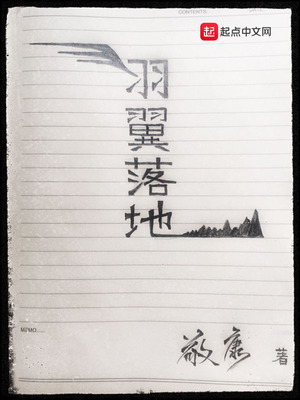 CONTENTS
起 起点中文网
羽翼落地
MEMO
敬康 著